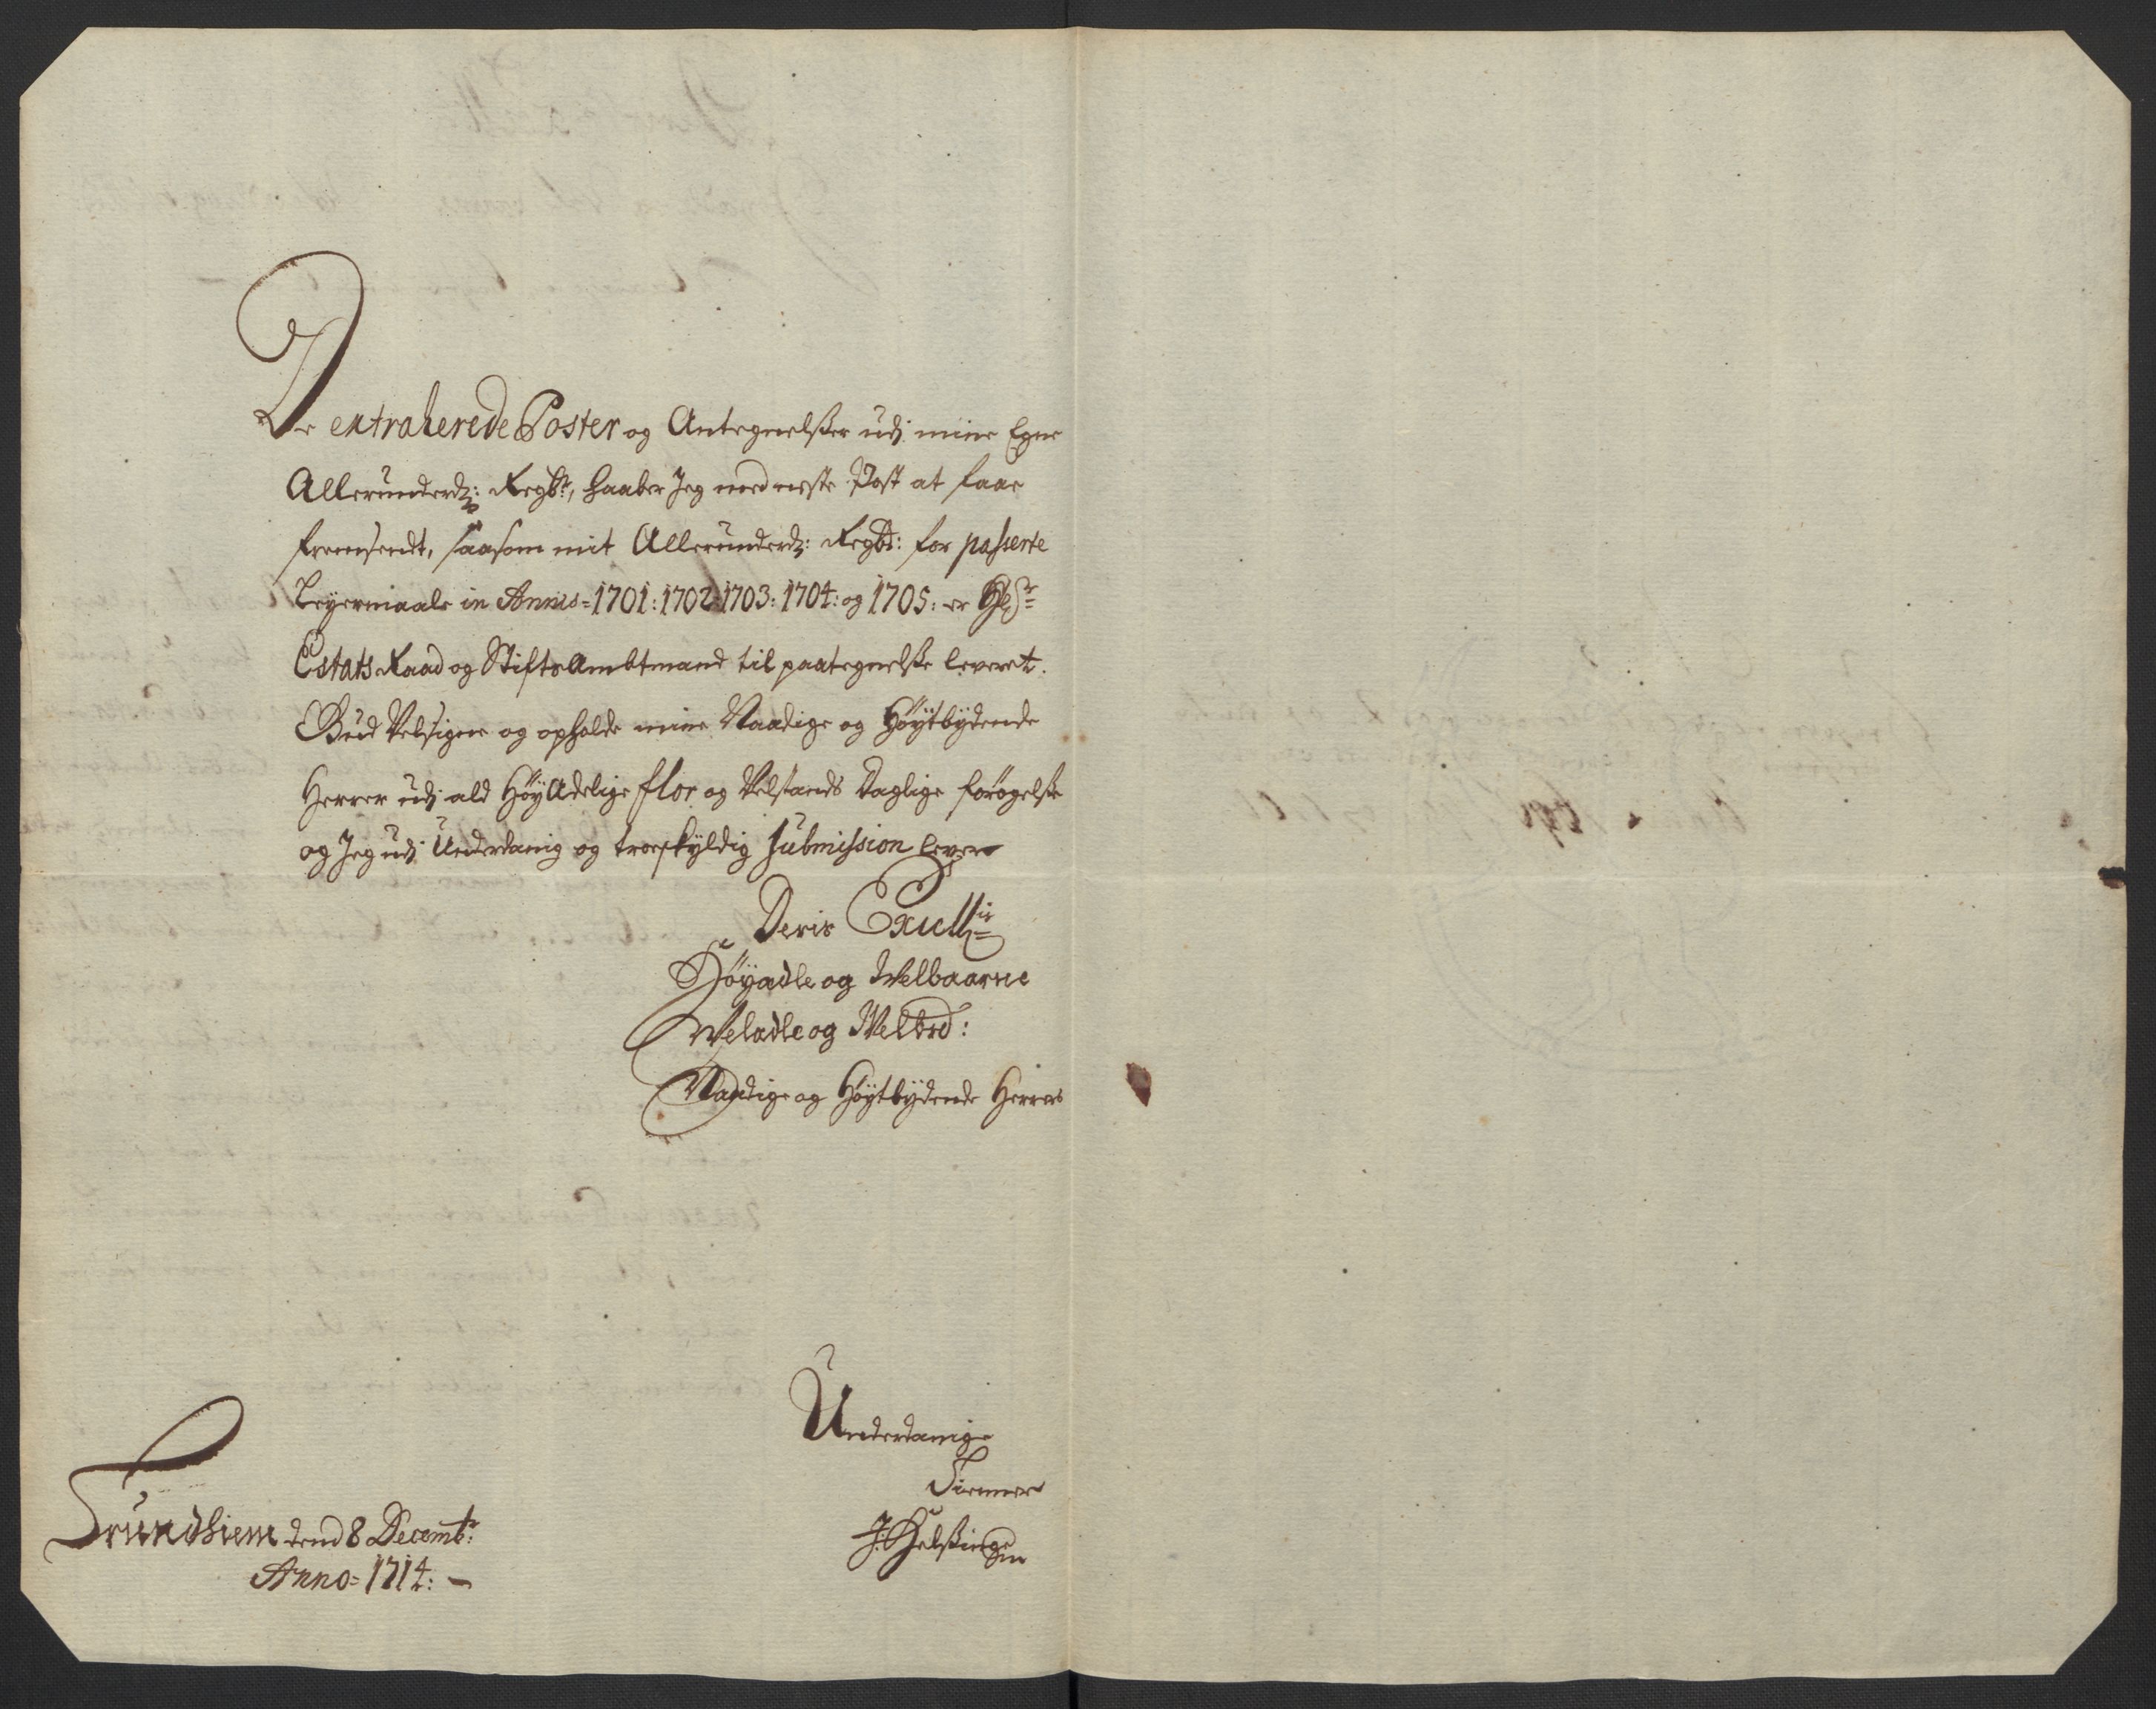 De extraherede Poster og Antegnelsser udj mine Egne
Allerunderdg: Regbr, haaber Jeg med neste Post at faae
fremsendt, saasom mit Allerunderdg: Regbr: for passerte
Leyermaale in Annis = 1701: 1702: 1703: 1704: og 1705: er Hl Hr
Estats Raad og StiftsAmbtmand til paategnelsse leveret.
Gud Velsigne og opholde mine Naadige og Høytbydende
Herrer udj ald HøyAdelige flor og Velstands Daglige forøgelsse
og Jeg udj Underdanig og troeskyldig submission lever
Deris Excellis
Høyædle og Welbaarne
Welædle og Welbrd:
Naadige og Høytbydende Herrers
Underdanige
Tienner
J: Helssingen
Trundhiem dend 8 Decembr:
Anno = 1714: –